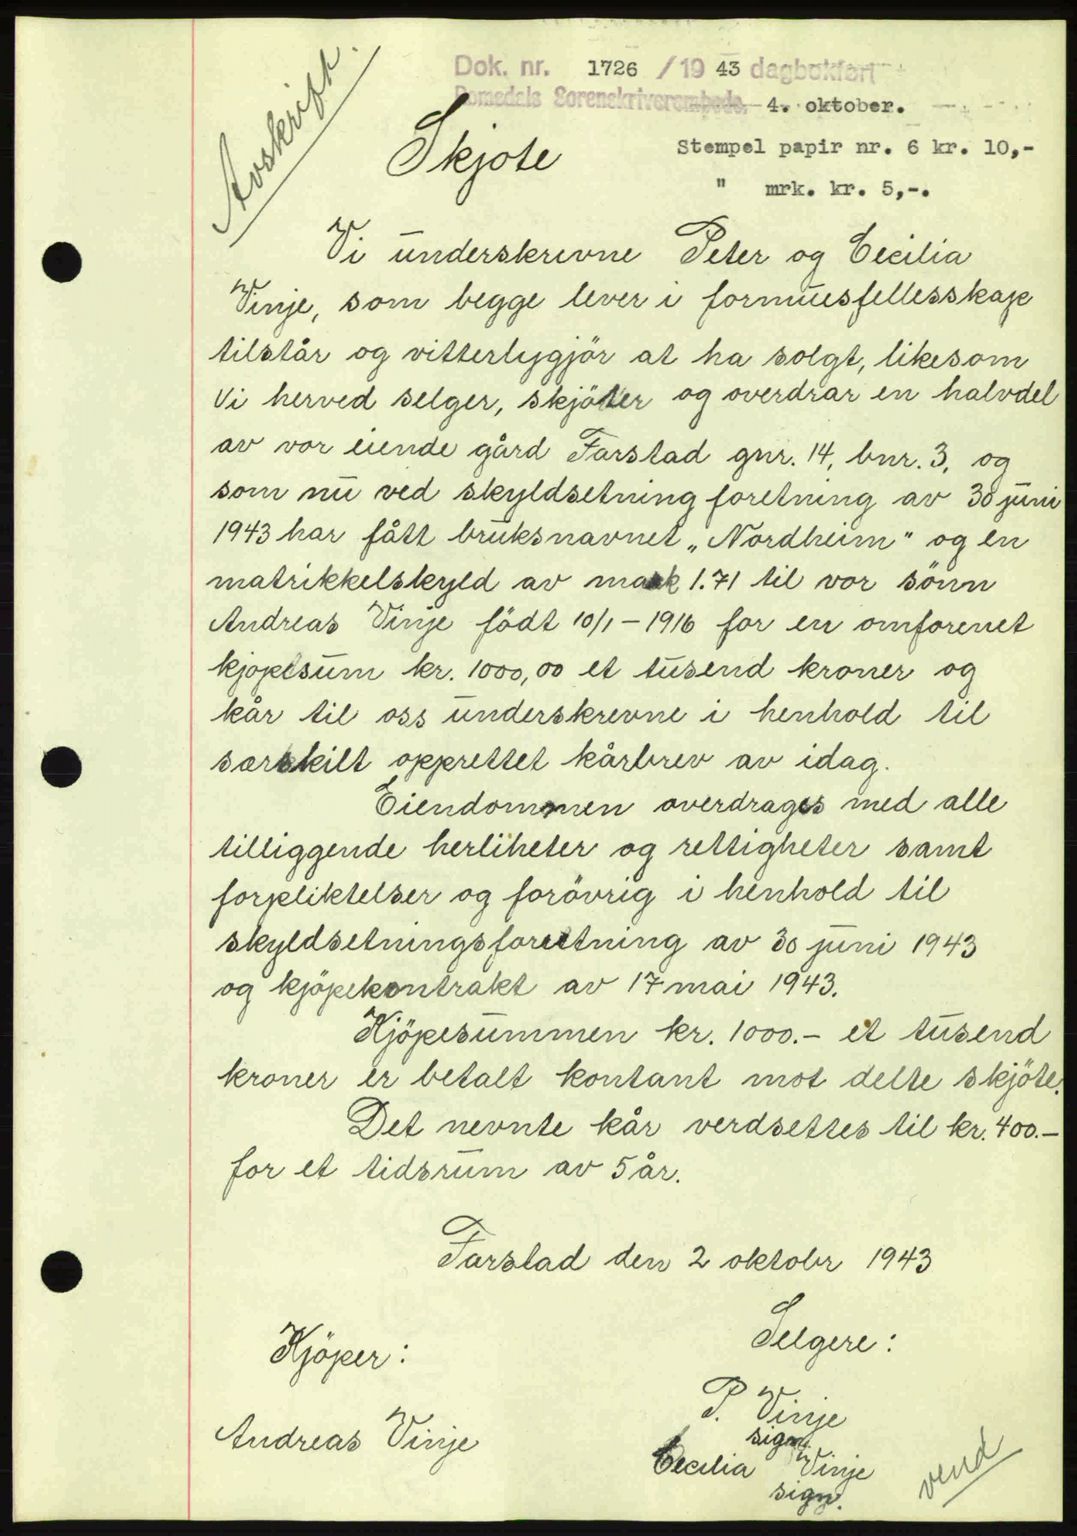 Avskrift.
Dok. nr. 1726 / 19 43 dagbokført
Romsdals Sorenskriverembede. 4. oktober.
Skjöte
Stempel papir nr. 6 kr. 10,-
" mrk. kr. 5,-.
Vi underskrevne Peter og Cecilia
Vinje, som begge lever i formuesfellesskap
tilstår og vitterlygjör at ha solgt, likesom
vi herved selger, skjöter og overdrar en halvdel
av vor eiende gård Farstad gnr. 14, bnr. 3, og
som nu ved skyldsetning foretning av 30 juni
1943 har fått bruksnavnet „Nordheim" og en
matrikkelskyld av mark 1.71 til vor sönn
Andreas Vinje född 10/1-1916 for en omforenet
kjöpesum kr. 1000,00 et tusend kroner og
kår til oss underskrevne i henhold til
særskilt opprettet kårbrev av idag.
Eiendommen overdrages med alle
tilliggende herliheter og rettigheter samt
forpliktelser og forövrig i henhold til
skyldsetningsforretning av 30 juni 1943
og kjöpekontrakt av 17 mai 1943.
Kjöpesummen kr. 1000.- et tusend
kroner er betalt kontant mot dette skjöte.
Det nevnte kår verdsettes til kr. 400.-
for et tidsrum av 5 år.
Farstad den 2 oktobr 1943
Kjöper:
Selgere:
P. Vinje
sign.
Andreas Vinje
Cecilia Vinje
sign.
vend